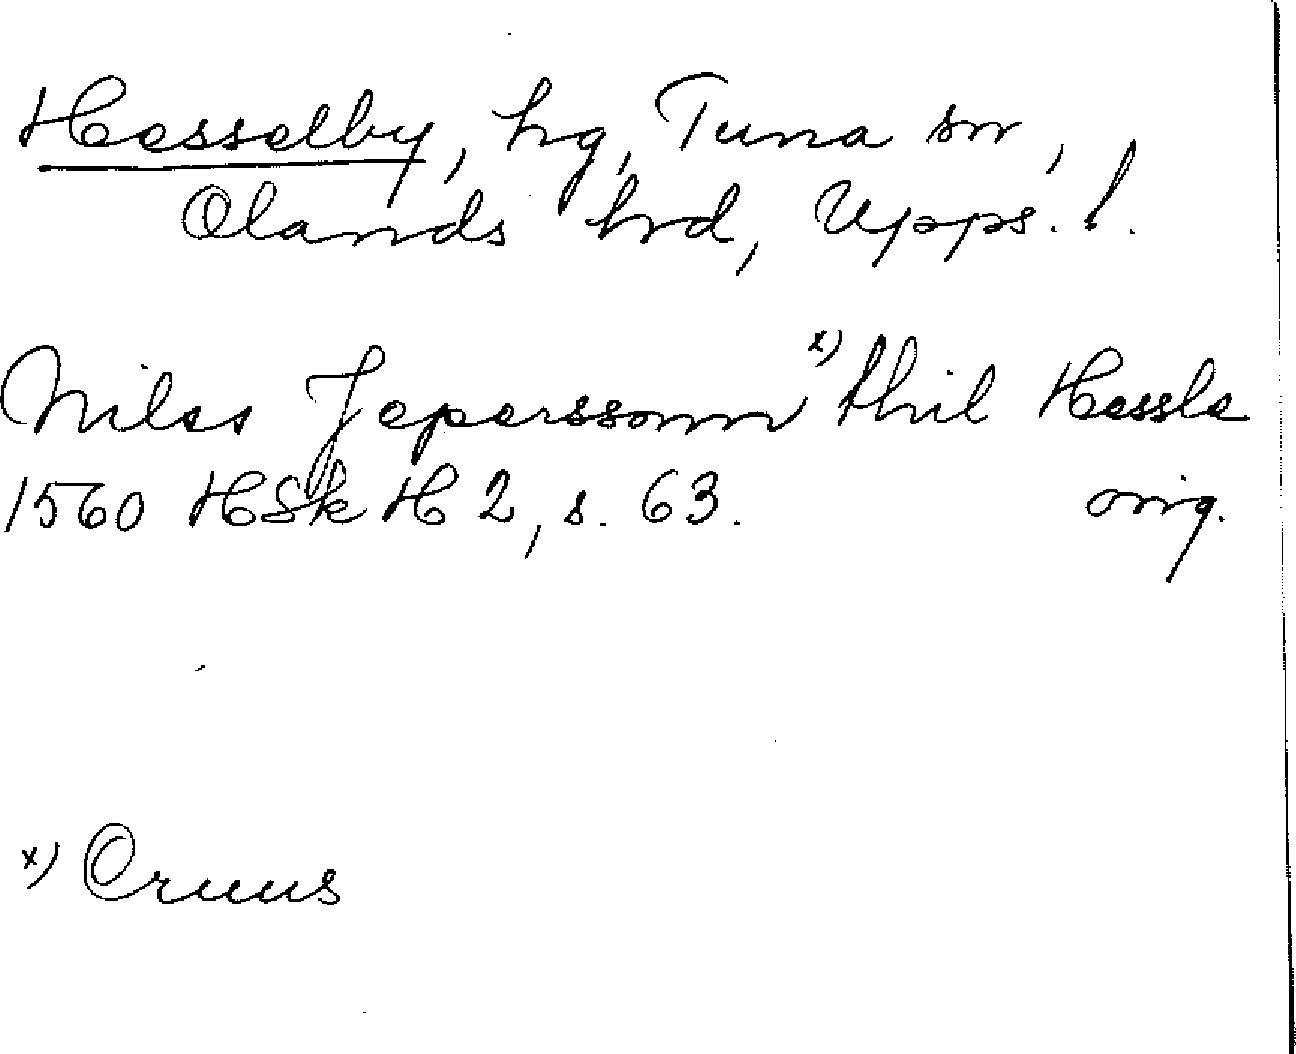 Hesselby, hg, Tuna sn,
Olands hrd, Upps. l.
Niles Jeperssonn x) thil Hessle
1560 HSkH 2, s. 63. orig.
x) Cruus